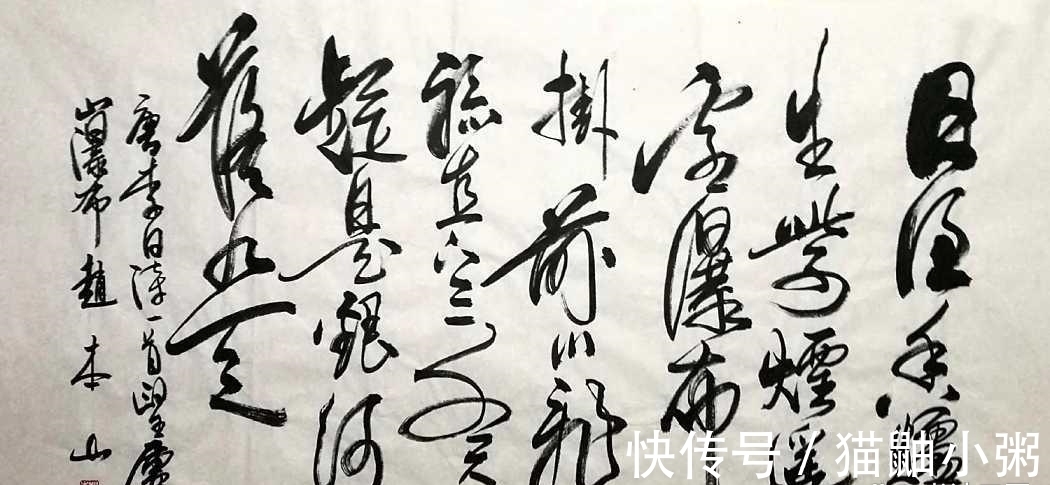 日照香爐
生紫煙遥
看瀑布
掛前川飛
流直下三千尺
疑是銀河
落九天
唐李白詩一首望廬
山瀑布 趙本山
快传号 / 猫鼬小粥